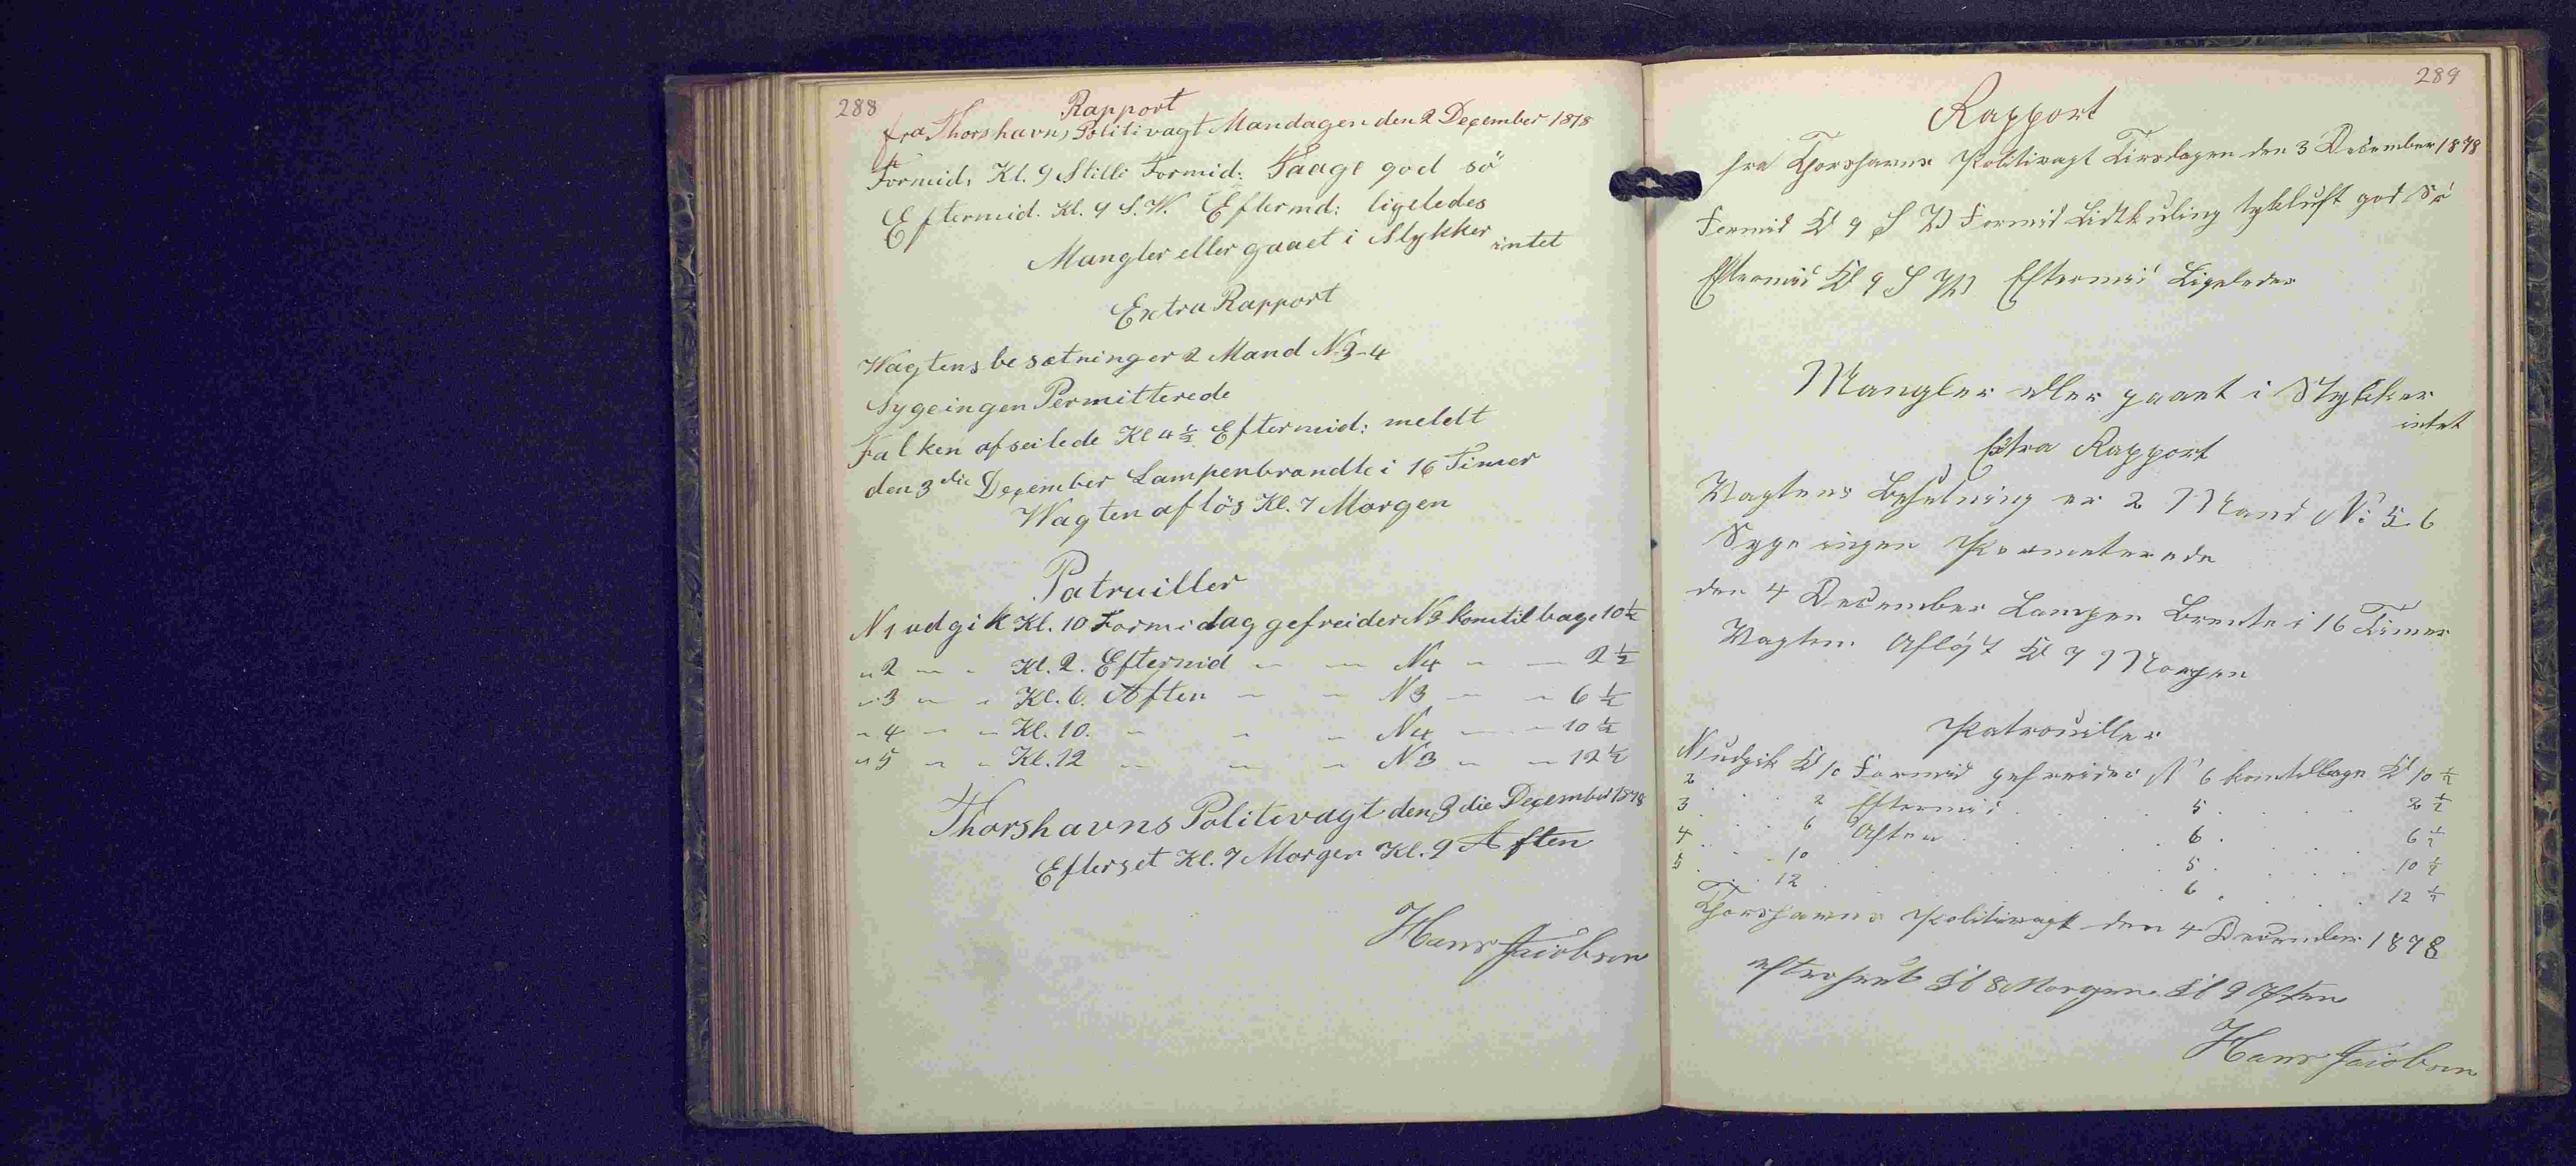 288
Rapport
fra Thorshavns Politivagt Mandagen den 2 December 1878
Formid. Kl. 9 Stille Formid: Taage god sö
Eftermid. Kl. 9 S.W. Eftermd: ligeledes
Mangler eller gaaet i Stykker intet
Extra Rapport
Wagtens besætning er 2 Mand N. 3-4
Syge ingen Permitterede
Falken afseilede Kl 4 1/2 Eftermid: meldt
den 3die December Lampen brandte i 16 Timer
Wagten aflös Kl. 7 Morgen
Patruiller
N 1 udgik Kl. 10 Formidag gefreider N 3 kom tilbage 10 1/2
" 2 " " Kl. 2. Eftermid " " N 4 " " 2 1/2
" 3 " " Kl. 6. Aften " " N 3 " " 6 1/2
" 4 " " Kl. 10. " " " N 4 " " 10 1/2
" 5 " " Kl. 12 " " " N 3 " " 12 1/2
Thorshavns Politivagt den 3die December 1878
Efterset Kl. 7 Morgen Kl. 9 Aften
Hans Jacobsen
289
Rapport
fra Thorshavns Politivagt Tirsdagen den 3 December 1878
Formid Kl 9 S W Formid Lidtkuling tykluft god Sö
Eftermid Kl 9 S W Eftermid Ligeledes
Mangler eller gaaet i Stykker
intet
Extra Rapport
Vagtens Besetning er 2 Mand N: 5. 6
Syge ingen Permeterede
den 4 December Lampen Brente i 16 Timer
Vagten Afløst Kl 7 Morgen
Patrouiller
N 1 udgik Kl 10 Formid gefreider N 6 kom tilbage Kl 10 1/2
2 . . . 2 Eftermid . . . 5 . . . 2 1/2
3 . . . 6 Aften . . . 6 . . . 6 1/2
4 . . . 10 . . . 5 . . . 10 1/2
5 . . . 12 . . . 6 . . . 12 1/2
Thorshavns Politivagt den 4 December 1878
efterseet Kl 8 Morgen Kl 9 Aften
Hans Jacobsen